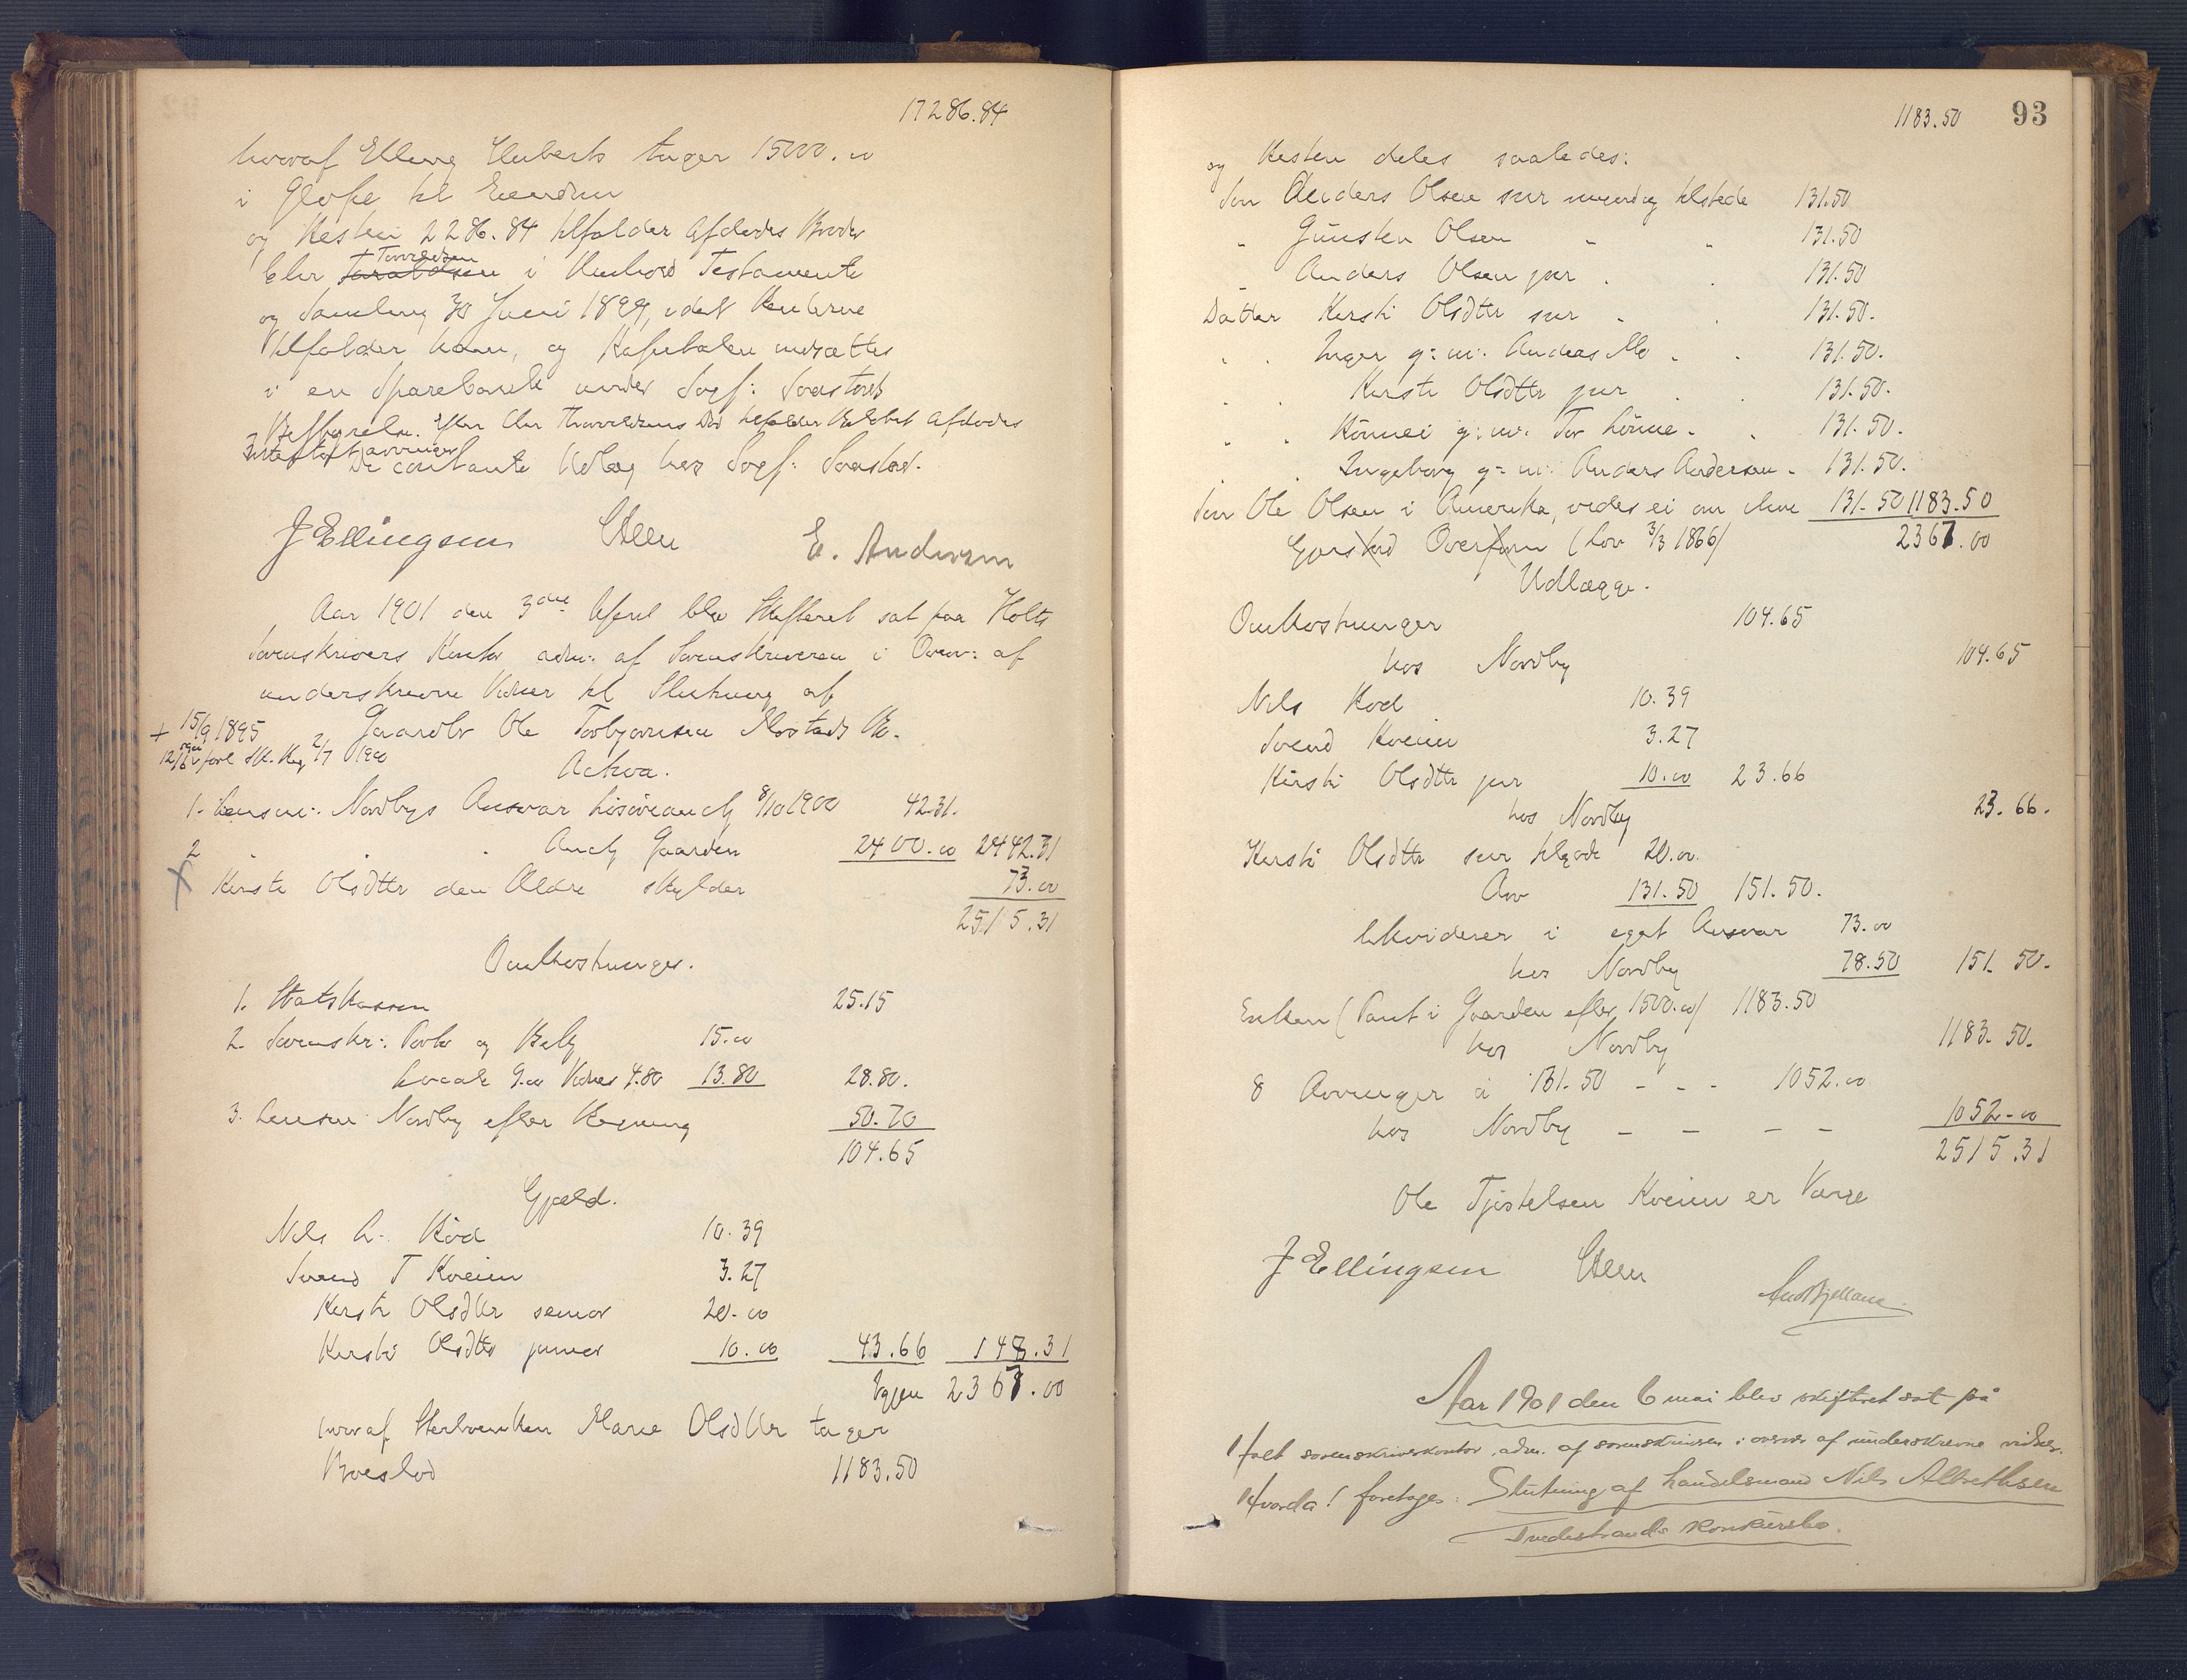 17286.84
hvoraf Elling Huberts tager 1500.00
i Gløße til Eiendom
og Resten 2286.84 tilfalder Afdødes Broder
Eler Taraldsen Torvaldsen i Testamente
og Samling 30 Juni 1899, idet Renterne
tilfalder ham, og Kapitalen indsættes
i en Sparebank under Sogf: Sørstøls
Bestyrelse. Efter Eler Thorvaldsens Død tilfalder Beløbet Afdødes
Intestatarvinger
De contante Udlæg hos Sogf:
J Ellingsen Steen E. Andersen
Aar 1901 den 3die April blev Skifteret sat paa Holts
Sorenskrivers Kontor adm: af Sorenskriveren i Overv: af
underskrevne Vidner til Slutning af
+ 15/9 1895 Gaardbr Ole Torbjørnsen Mostads Bo.
2/7 1900
Activa.
1. Lensm: Nordbys Ansvar Løsøreauct 8/10 1900 42.31.
2 " " " Auct Gaarden 2400.00 2442.31
X Kirsti Olsdtr den Ældre skylder 73.00
2515.31
Omkostninger.
1. Statskassen 25.15
2. Sorenskr: Porto og Bekj 15.00
Locale 9.00 Vidner 4.80 13.80 28.80.
3. Lensm Nordby efter Regning 50.70
104.65
Gjæld.
Nels A. Rød 10.39
Svend T Kveim 3.27
Kirsti Olsdtr senior 20.00
Kirsti Olsdtr junior 10.00 43.66 148.31
Igjen 2367.00
hvoraf Sterboenken Marie Olsdtr tager
Boeslod 1183.50
1183.50 93
og Resten deles saaledes:
Søn Anders Olsen snr myndig tilstede 131.50
" Gunsten Olsen " " 131.50
Anders Olsen jnr . . 131.50
Datter Kirsti Olsdtr snr . . 131.50.
. . Inger g: m: Anders Mo . . 131.50.
. . Kirsti Olsdtr jnr . . 131.50.
. . Rønnei g: m: Tor Lønne . . 131.50.
. . Ingeborg g: m: Anders Andersen . 131.50.
Søn Ole Olsen i Amerika, vides ei om ilive 131.50 1183.50
Gjorstad Overform (Lov 3/3 1866) 2367.00
Udlægge.
Omkostninger 104.65
hos Nordby 104.65
Nils Rød 10.39
Svend Kveim 3.27
Kirsti Olsdtr jnr 10.00 23.66
hos Nordby 23.66.
Kirsti Olsdtr snr tilgode 20.00.
Arv 131.50 151.50.
likviderer i eget Ansvar 73.00
hos Nordby 78.50 151.50.
Enken (Pant i Gaarden efter 1500.00) 1183.50
hos Nordby 1183.50.
8 Arvinger á 131.50 - - - 1052.00
hos Nordby - - - - 1052.00
2515.31
Ole Tjøstelsen Kveim er Værge
J Ellingsen Steen
Aar 1901 den 6 mai blev skifteret sat på
Holt sorenskriverkontor adm. af sorenskriveren i overvær af underskrevne vidner.
Hvorda! foretoges: Slutning af handelsmand Nils Albrethsen
Tvedestrands konkursbo.